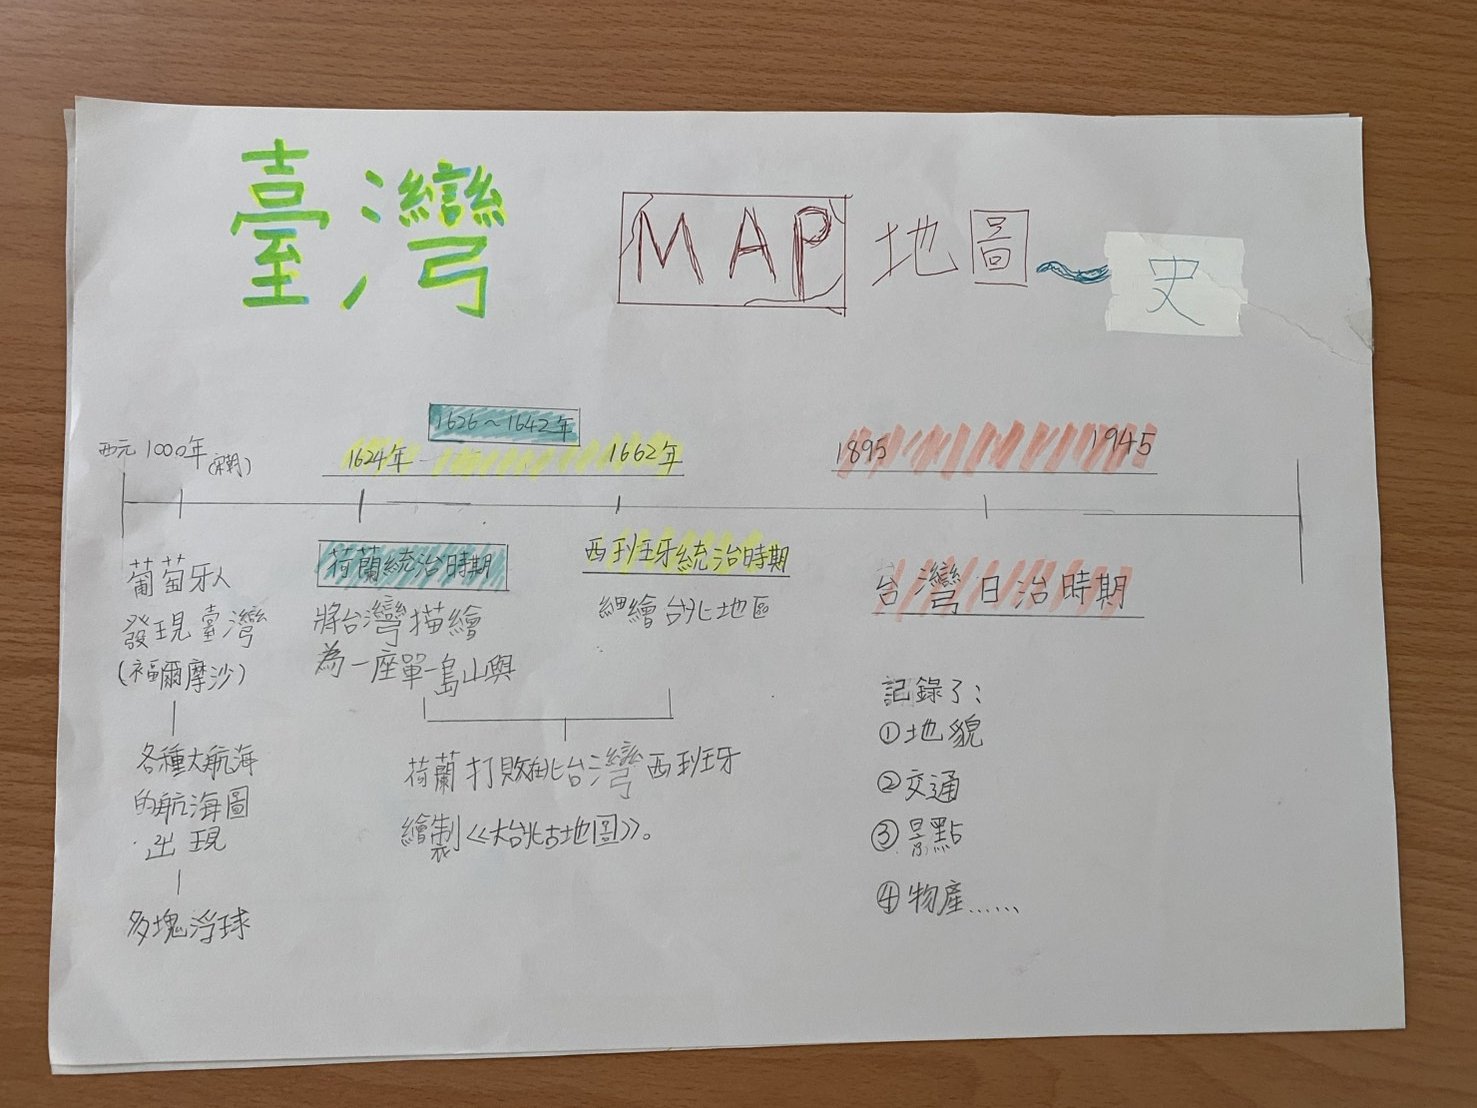 臺灣 MAP 地圖~史
1626～1642年
西元1000年
1624年
1662年
1895
1945
葡萄牙人
發現臺灣
(福爾摩沙)
各種大航海
的航海圖
出現
多塊浮球
荷蘭統治時期
將台灣描繪
為一座單一島山與
西班牙統治時期
細繪台北地區
荷蘭打敗在北台灣西班牙
繪製《大台北古地圖》。
台灣日治時期
記錄了:
①地貌
②交通
③景點
④物產......